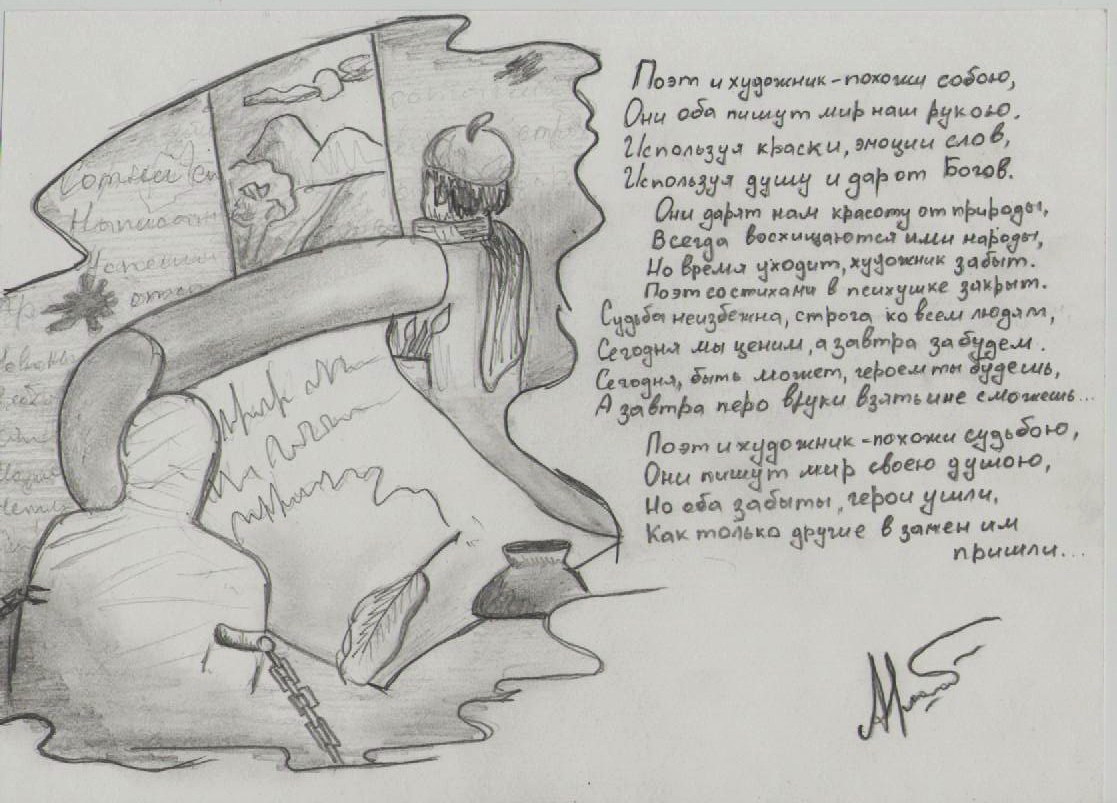 Поэт и художник - похожи собою,
Они оба пишут мир наш рукою.
Используя краски, эмоции слов,
Используя душу и дар от Богов.
Они дарят нам красоту от природы,
Всегда восхищаются ими народы,
Но время уходит, художник забыт.
Поэт со стихами в психушке закрыт.
Судьба неизбежна, строга ко всем людям,
Сегодня мы ценим, а завтра забудем.
Сегодня, быть может, героем ты будешь,
А завтра перо в руки взять и не сможешь...
Поэт и художник - похожи судьбою,
Они пишут мир своею душою,
Но оба забыты, герои ушли,
Как только другие в замен им
пришли...